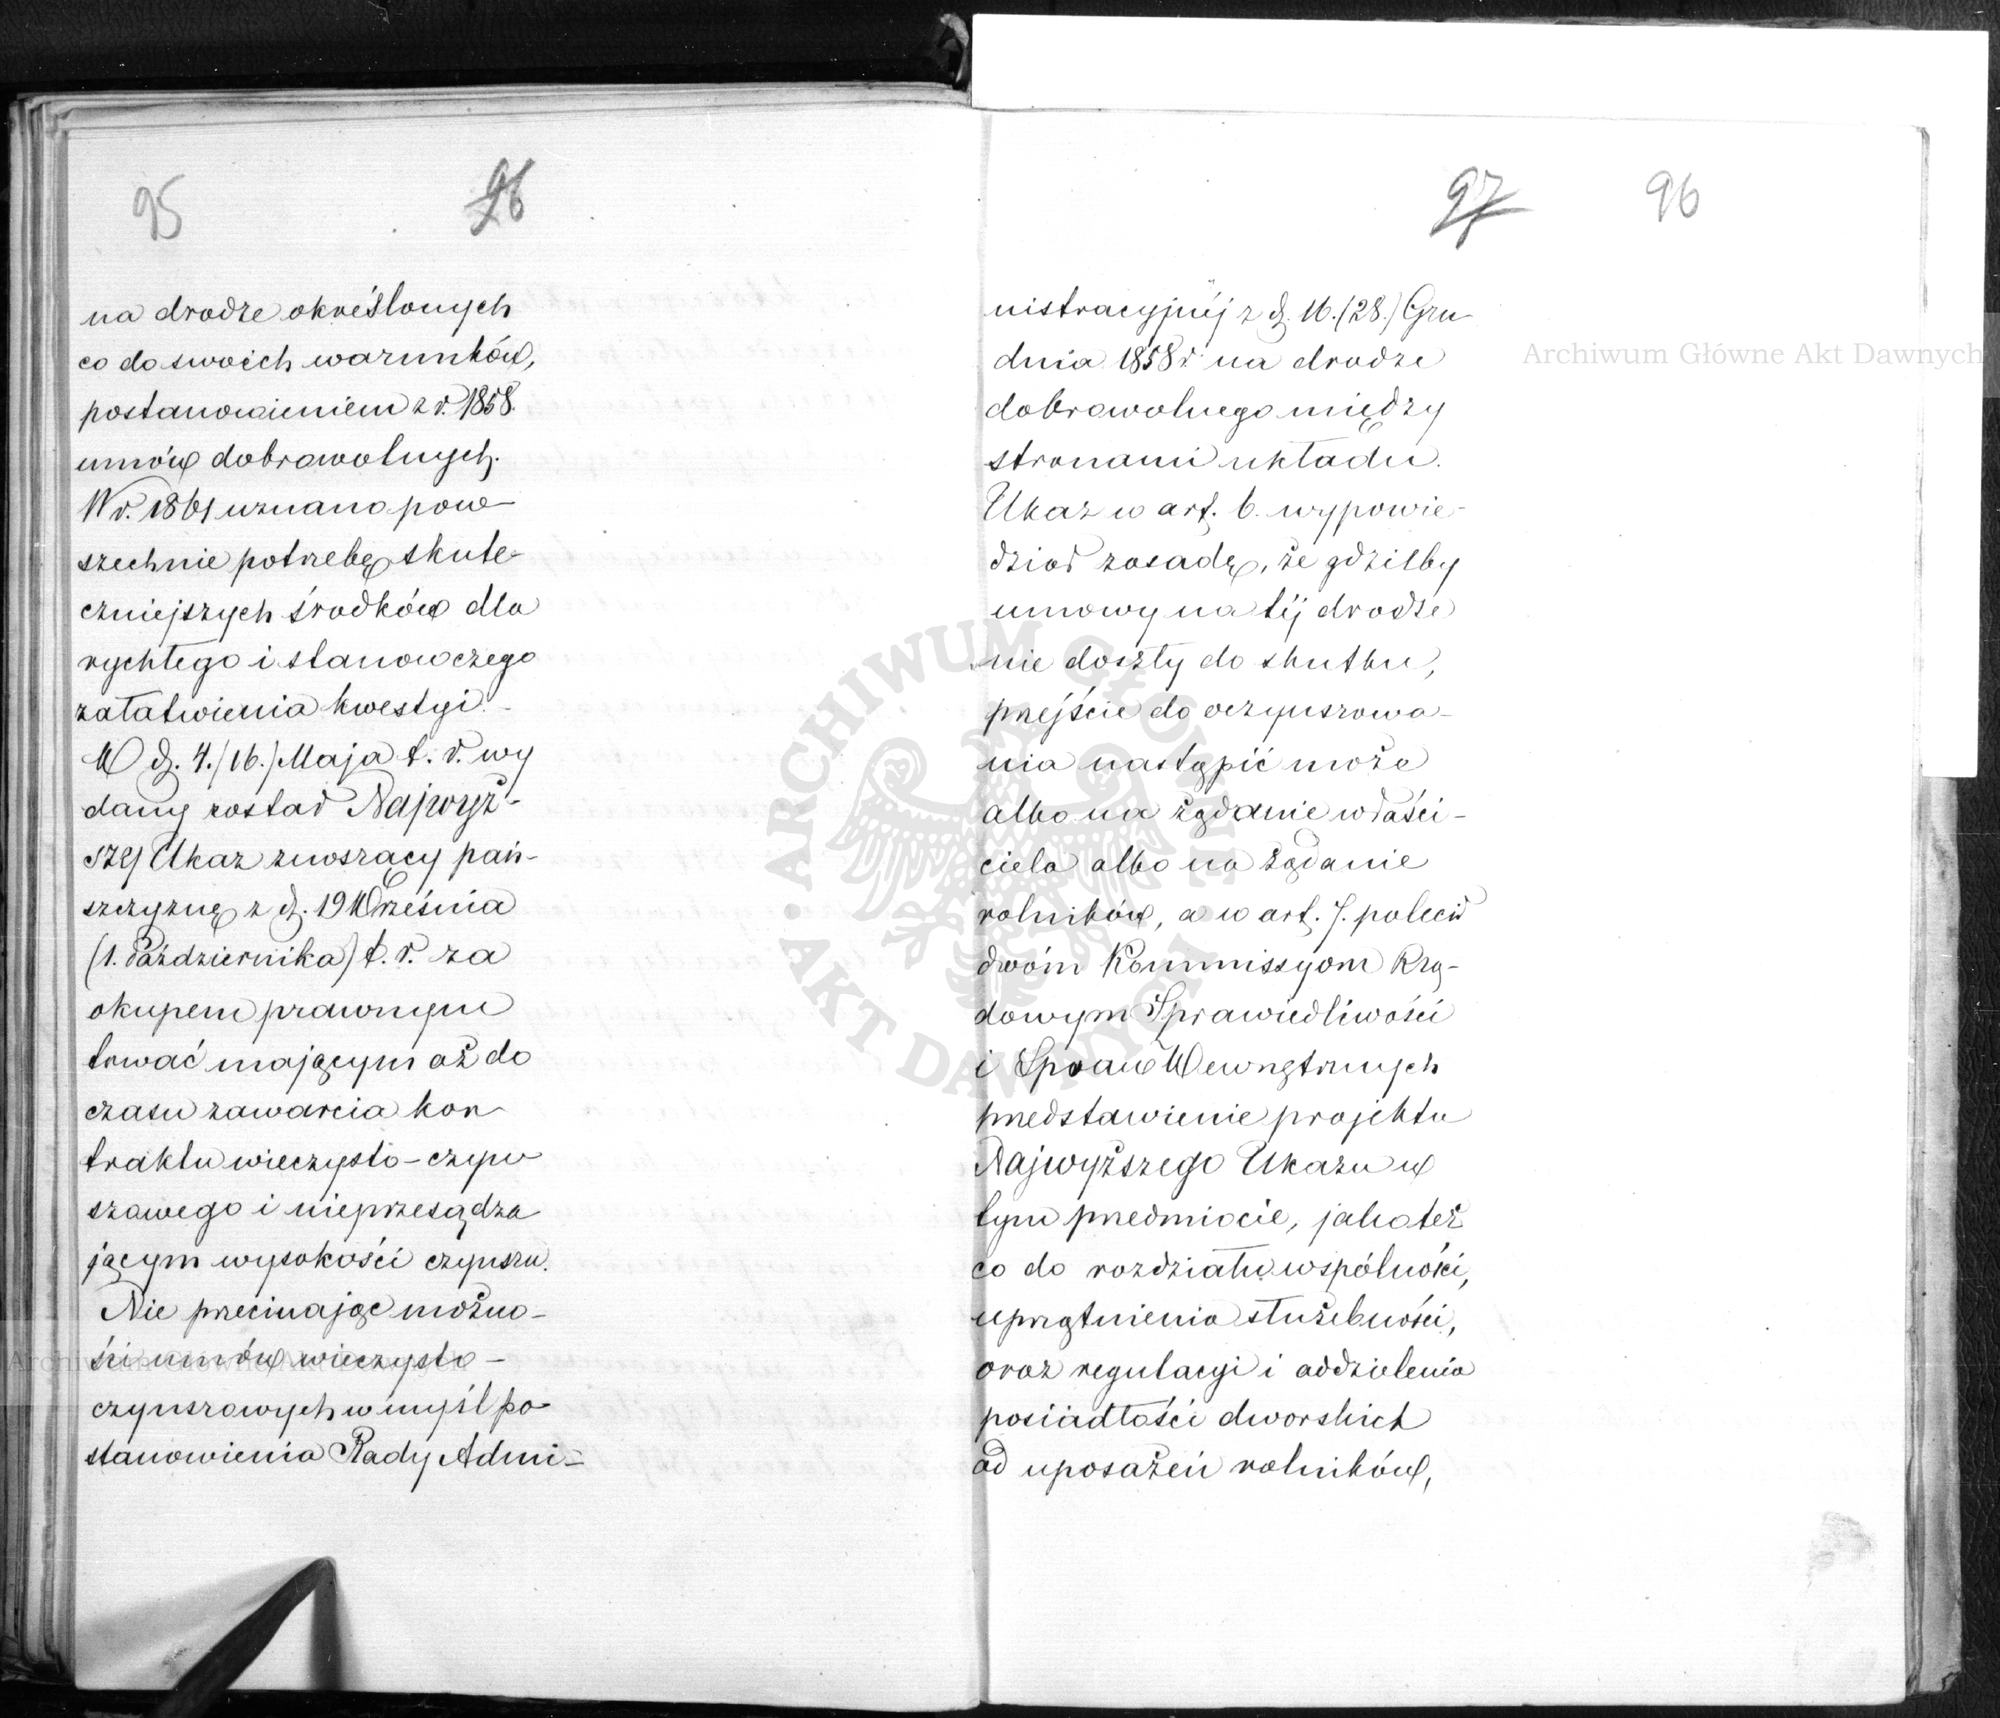 95 96
na drodze określonych
co do swoich warunków,
postanowieniem z r. 1858.
umów dobrowolnych.
W r. 1861 uznano pow-
szechnie potrzebę skute-
czniejszych środków dla
rychłego i stanowczego
załatwienia kwestyi. -
W d. 4./16./ Maja t. r. wy
dany został Najwyż-
szy Ukaz znoszący pań-
szczyznę z d. 19 Września
(1. Października) t. r. za
okupem prawnym
trwać mającym aż do
czasu zawarcia kon-
traktu wieczysto-czyn-
szowego i nieprzesądza
jącym wysokości czynszu.
Nie przecinając możno-
ści umów wieczysto-
czynszowych w myśl po-
stanowienia Rady Admi-
97 96
nistracyjnéj z d. 16./28./ Gru-
dnia 1858 r. na drodze
dobrowolnego między
stronami układu.
Ukaz w art. 6. wypowie-
dział zasadę, że gdzieby
umowy na téj drodze
nie doszły do skutku,
przejście do oczynszowa-
nia nastąpić może
albo na żądanie właści-
ciela albo na żądanie
rolników, a w art. 7. polecił
dwóm Kommissyom Rzą-
dowym Sprawiedliwości
i Spraw Wewnętrznych
przedstawienie projektu
Najwyższego Ukazu w
tym przedmiocie, jako też
co do rozdziału wspólności,
uprzątnienia służebności,
oraz regulacyi i oddzielenia
posiadłości dworskich
od uposażeń rolników,
Archiwum Główne Akt Dawnych
ARCHIWUM GŁÓWNE • AKT DAWNYCH •
Archiwum Główne Akt Dawnych